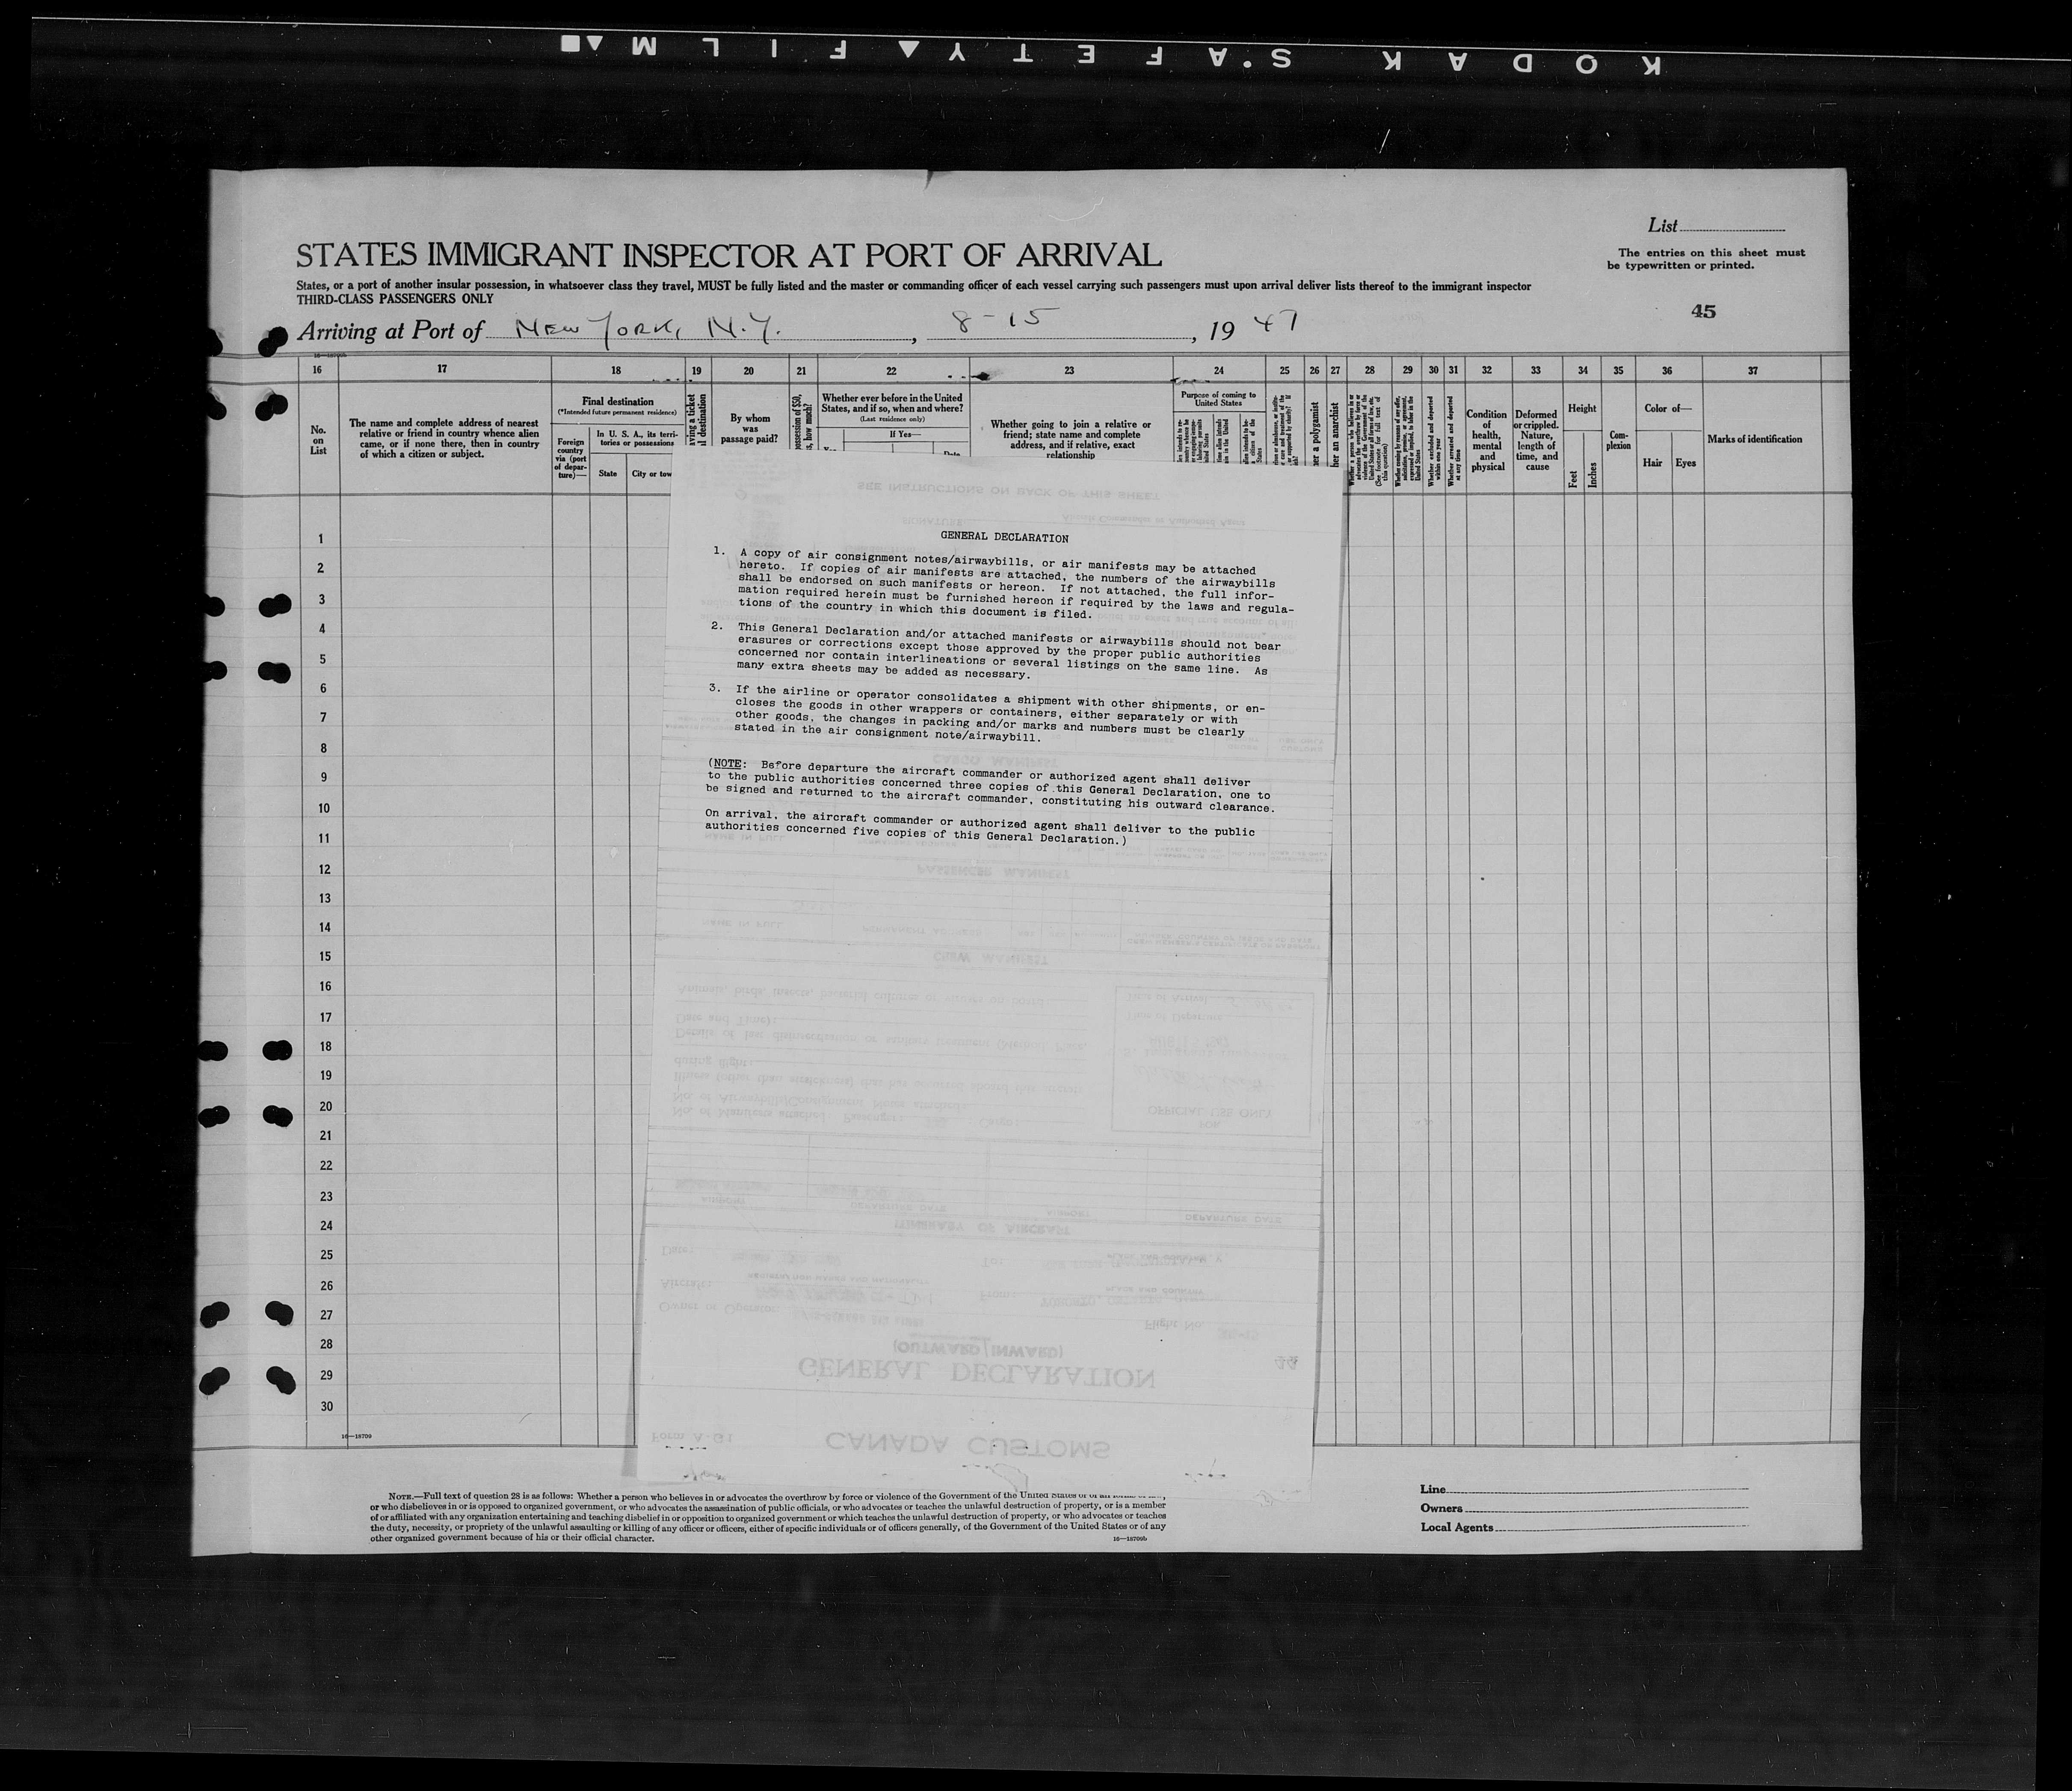 KODAK SAFETY FILM
List
STATES IMMIGRANT INSPECTOR AT PORT OF ARRIVAL
The entries on this sheet must
be typewritten or printed.
States, or a port of another insular possession, in whatsoever class they travel, MUST be fully listed and the master or commanding officer of each vessel carrying such passengers must upon arrival deliver lists thereof to the immigrant inspector
THIRD-CLASS PASSENGERS ONLY
45
Arriving at Port of New York, N.Y. , 8-15 , 1947
16 17 18 19 20 21 22 23 24 25 26 27 28 29 30 31 32 33 34 35 36 37
No.
on
List
The name and complete address of nearest
relative or friend in country whence alien
came, or if none there, then in country
of which a citizen or subject.
Final destination
(*Intended future permanent residence)
Foreign
country
via (port
of depar-
ture)—
In U. S. A., its terri-
tories or possessions
State
City or tow
By whom
was
passage paid?
Whether ever before in the United
States, and if so, when and where?
(Last residence only)
If Yes—
Whether going to join a relative or
friend; state name and complete
address, and if relative, exact
relationship
Purpose of coming to
United States
Whether excluded and deported
within one year
Whether arrested and deported
at any time
Condition
of
health,
mental
and
physical
Deformed
or crippled.
Nature,
length of
time, and
cause
Height
Feet
Inches
Com-
plexion
Color of—
Hair
Eyes
Marks of identification
1
2
3
4
5
6
7
8
9
10
11
12
13
14
15
16
17
18
19
20
21
22
23
24
25
26
27
28
29
30
16—18709
GENERAL DECLARATION
1. A copy of air consignment notes/airwaybills, or air manifests may be attached
hereto. If copies of air manifests are attached, the numbers of the airwaybills
shall be endorsed on such manifests or hereon. If not attached, the full infor-
mation required herein must be furnished hereon if required by the laws and regula-
tions of the country in which this document is filed.
2. This General Declaration and/or attached manifests or airwaybills should not bear
erasures or corrections except those approved by the proper public authorities
concerned nor contain interlineations or several listings on the same line. As
many extra sheets may be added as necessary.
3. If the airline or operator consolidates a shipment with other shipments, or en-
closes the goods in other wrappers or containers, either separately or with
other goods, the changes in packing and/or marks and numbers must be clearly
stated in the air consignment note/airwaybill.
(NOTE: Before departure the aircraft commander or authorized agent shall deliver
to the public authorities concerned three copies of this General Declaration, one to
be signed and returned to the aircraft commander, constituting his outward clearance.
On arrival, the aircraft commander or authorized agent shall deliver to the public
authorities concerned five copies of this General Declaration.)
NOTE.—Full text of question 28 is as follows: Whether a person who believes in or advocates the overthrow by force or violence of the Government of the United States or of all
or who disbelieves in or is opposed to organized government, or who advocates the assassination of public officials, or who advocates or teaches the unlawful destruction of property, or is a member
of or affiliated with any organization entertaining and teaching disbelief in or opposition to organized government or which teaches the unlawful destruction of property, or who advocates or teaches
the duty, necessity, or propriety of the unlawful assaulting or killing of any officer or officers, either of specific individuals or of officers generally, of the Government of the United States or of any
other organized government because of his or their official character.
16—18709b
Line
Owners
Local Agents